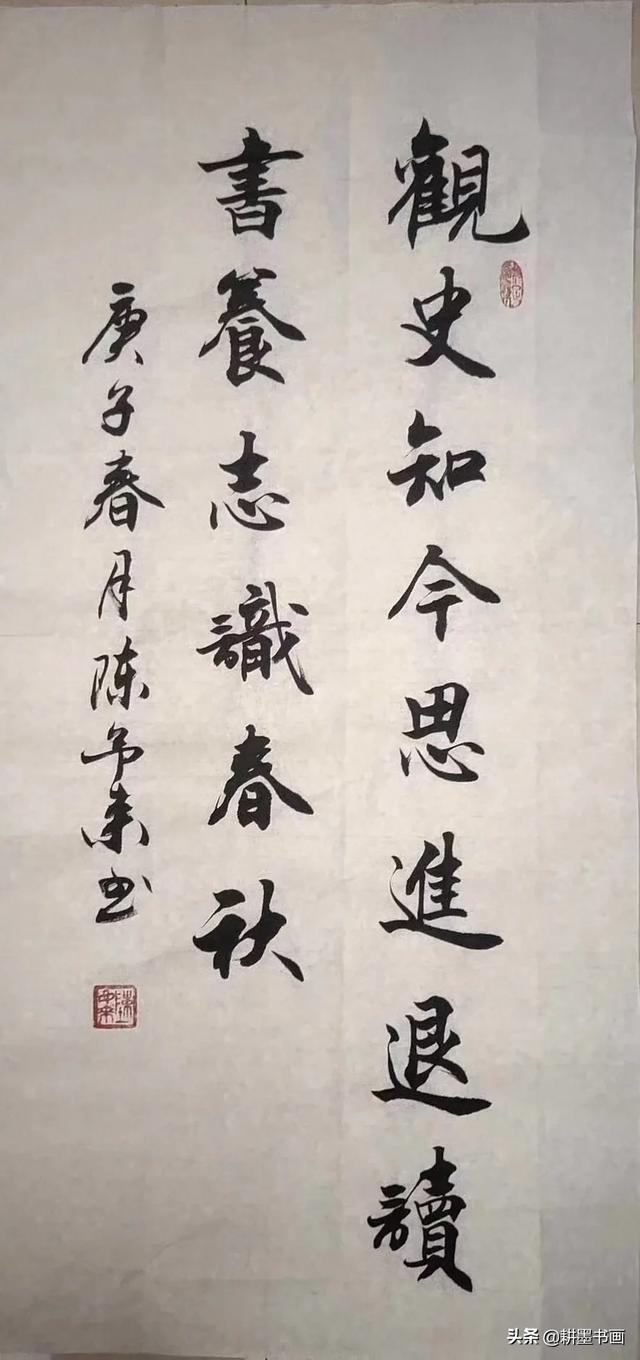 觀史知今思進退讀
書養志識春秋
庚子春月陈予来书
头条 @耕墨书画